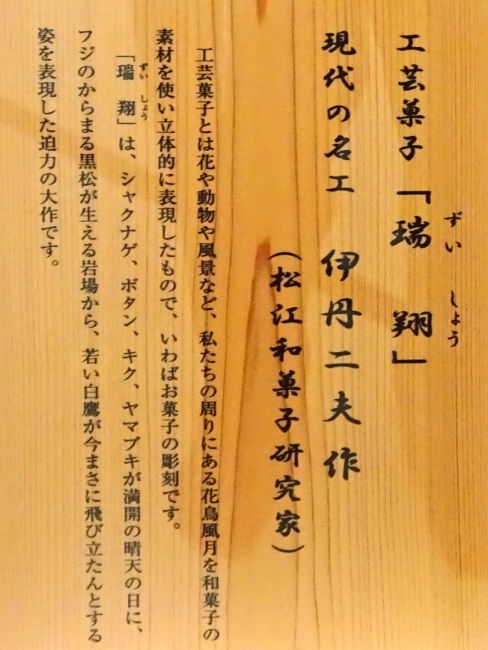 工芸菓子「瑞翔」
ずい しょう
現代の名工 伊丹二夫作
(松江和菓子研究家)
工芸菓子とは花や動物や風景など、私たちの周りにある花鳥風月を和菓子の
素材を使い立体的に表現したもので、いわばお菓子の彫刻です。
「瑞翔」は、シャクナゲ、ボタン、キク、ヤマブキが満開の晴天の日に、
ずい しょう
フジのからまる黒松が生える岩場から、若い白鷹が今まさに飛び立たんとする
姿を表現した迫力の大作です。